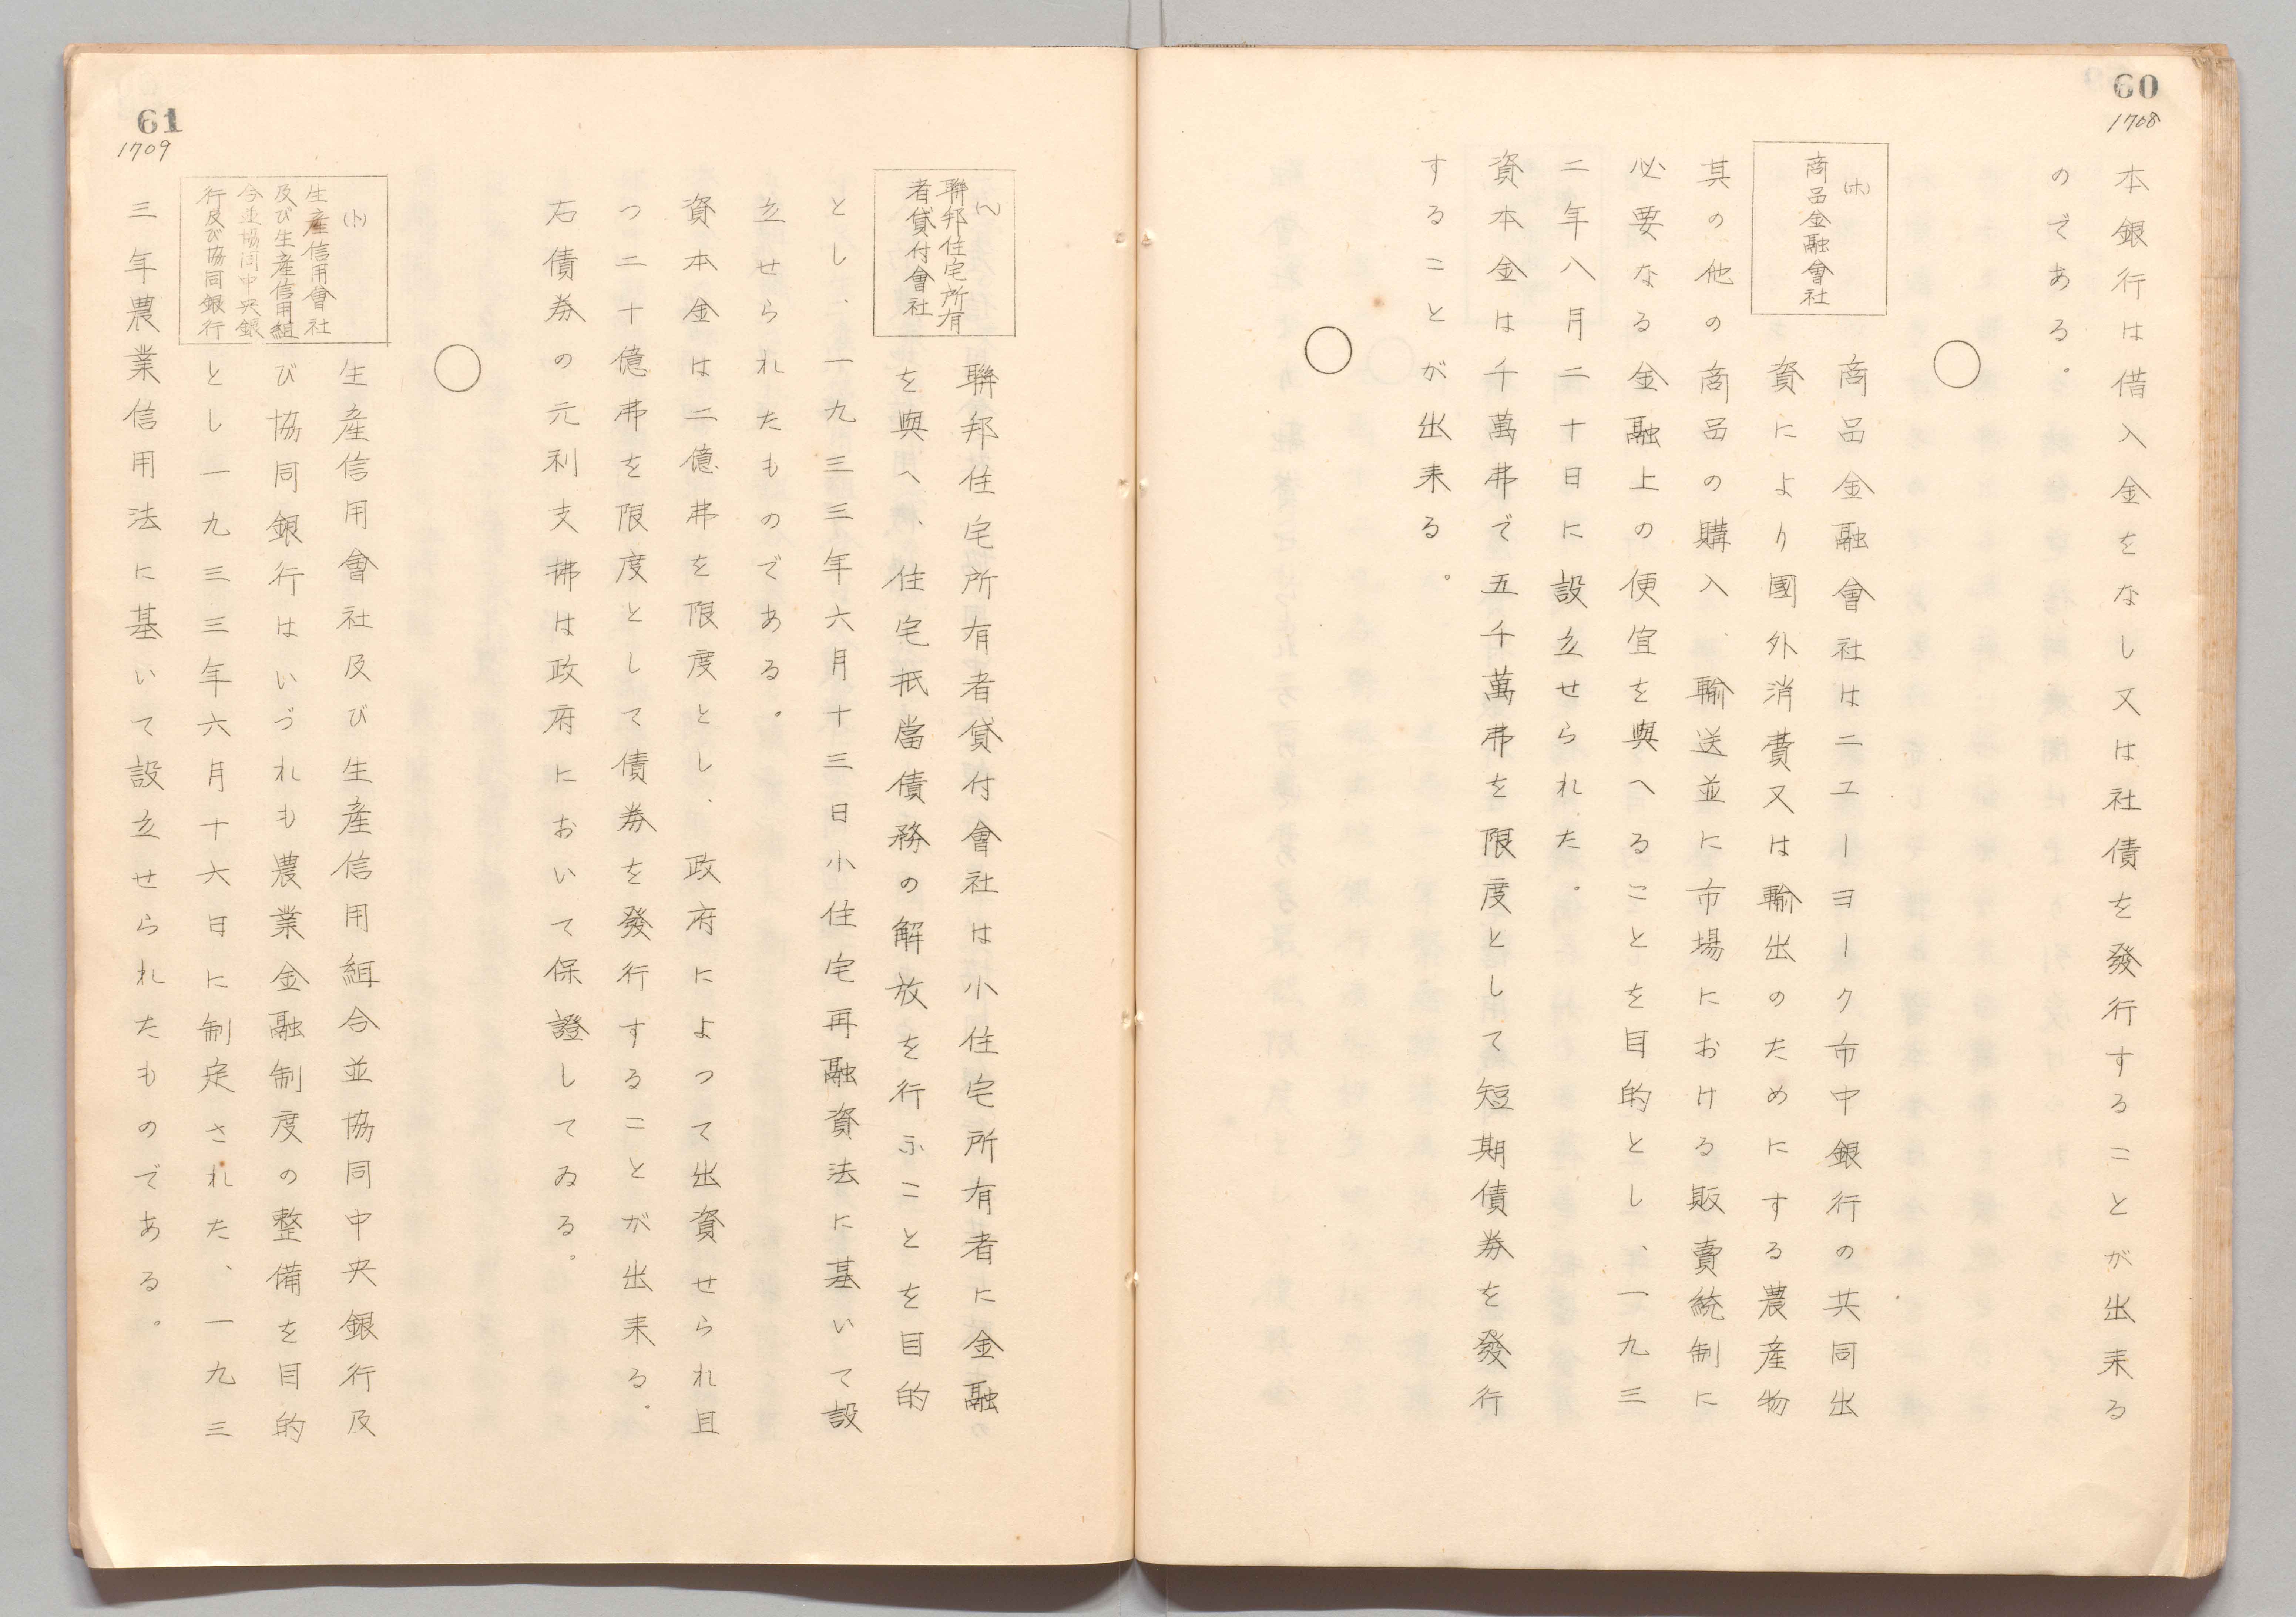 60
1708
本銀行は借入金をなし又は社債を發行することが出来る
のである。
○
(ホ)
商品金融會社
商品金融會社はニユーヨーク市中銀行の共同出
資により國外消費又は輸出のためにする農産物
其の他の商品の購入、輸送並に市場における販賣統制に
必要なる金融上の便宜を與へることを目的とし、一九三
二年八月二十日に設立せられた。
資本金は千萬弗で五千萬弗を限度として短期債券を發行
することが出来る。
○
61
1709
(ヘ)
聯邦住宅所有
者貸付會社
聯邦住宅所有者貸付會社は小住宅所有者に金融
を與へ、住宅抵當債務の解放を行ふことを目的
とし、一九三三年六月十三日小住宅再融資法に基いて設
立せられたものである。
資本金は二億弗を限度とし、政府によつて出資せられ且
つ二十億弗を限度として債券を發行することが出来る。
右債券の元利支拂は政府において保證してゐる。
○
(ト)
生産信用會社
及び生産信用組
合並協同中央銀
行及び協同銀行
生産信用會社及び生産信用組合並協同中央銀行及
び協同銀行はいづれも農業金融制度の整備を目的
とし一九三三年六月十六日に制定された、一九三
三年農業信用法に基いて設立せられたものである。